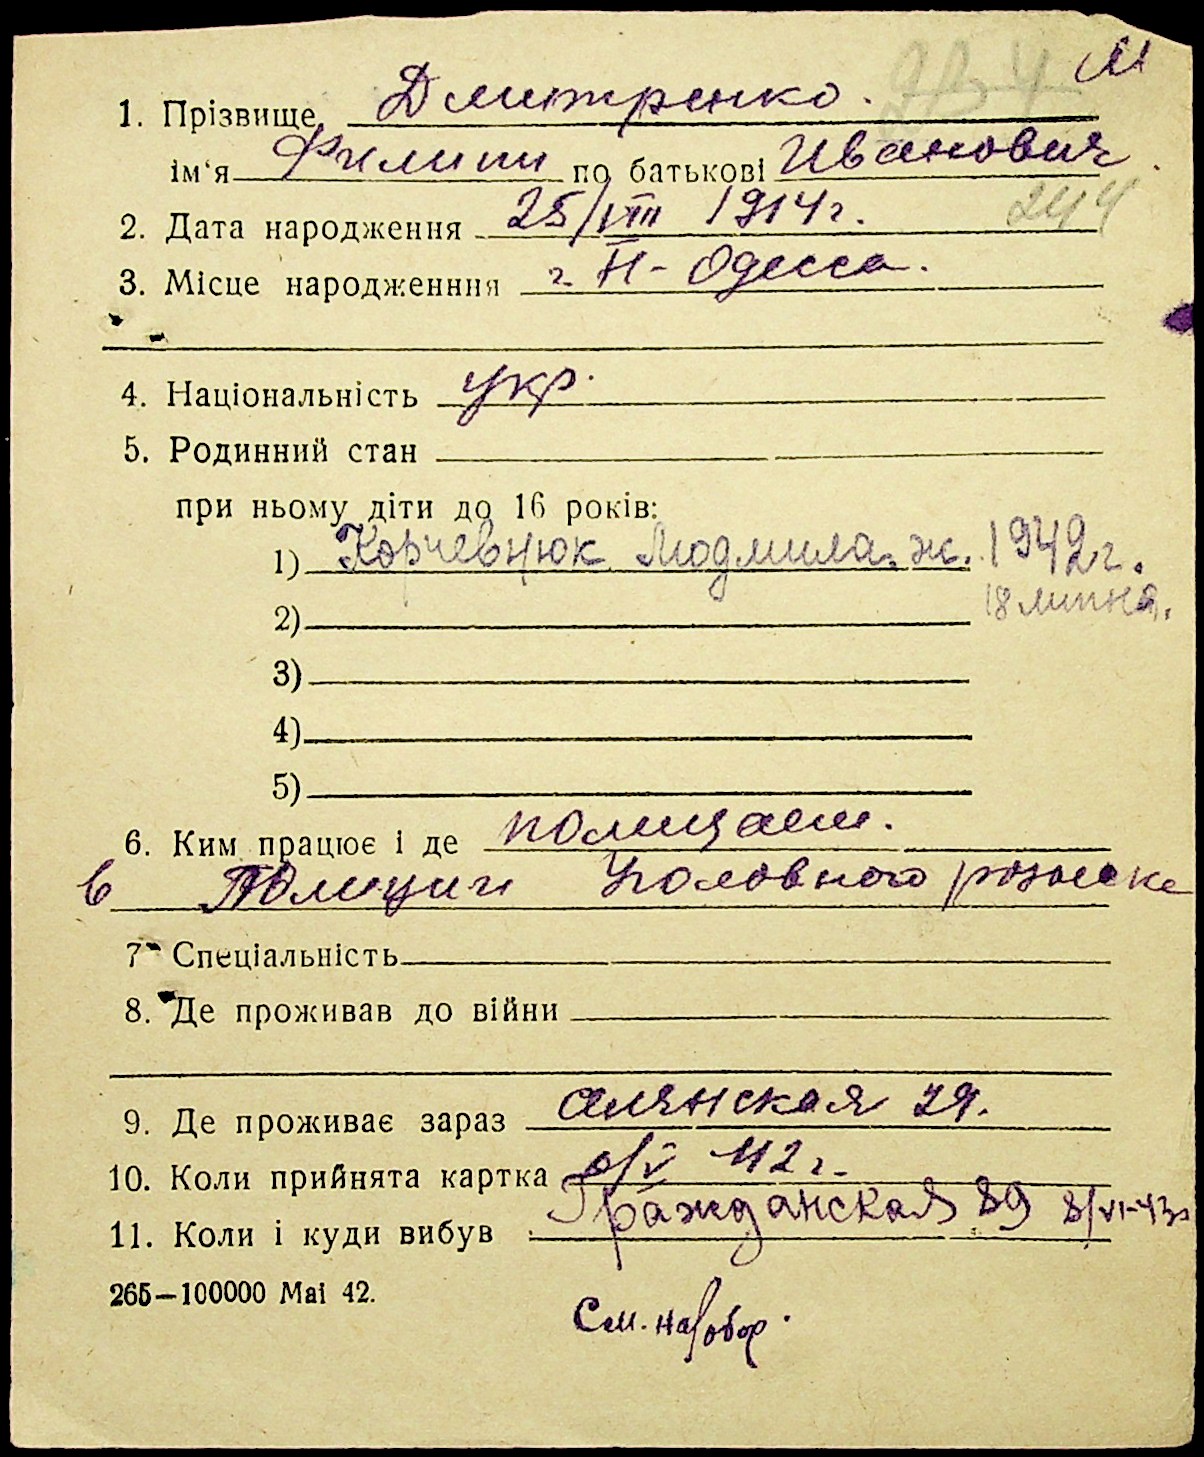 М
1. Прізвище Дмитренко.
ім‘я Филипп по батькові Иванович.
2. Дата народження 25/VIII 1914 г. 244
3. Місце народженння г. Н-Одесса.
4. Національність укр.
5. Родинний стан
при ньому діти до 16 років:
1) Корчевнюк Людмила. ж. 1942 г.
18 липня.
2)
3)
4)
5)
6. Ким працює і де полицаем.
в Полиции Уголовного розыска
7. Спеціальність
8. Де проживав до війни
9. Де проживає зараз
10. Коли прийнята картка 42 г.
11. Коли і куди вибув Гражданская 89 8/VI-43г
265—100000 Mai 42.
См. на обор.